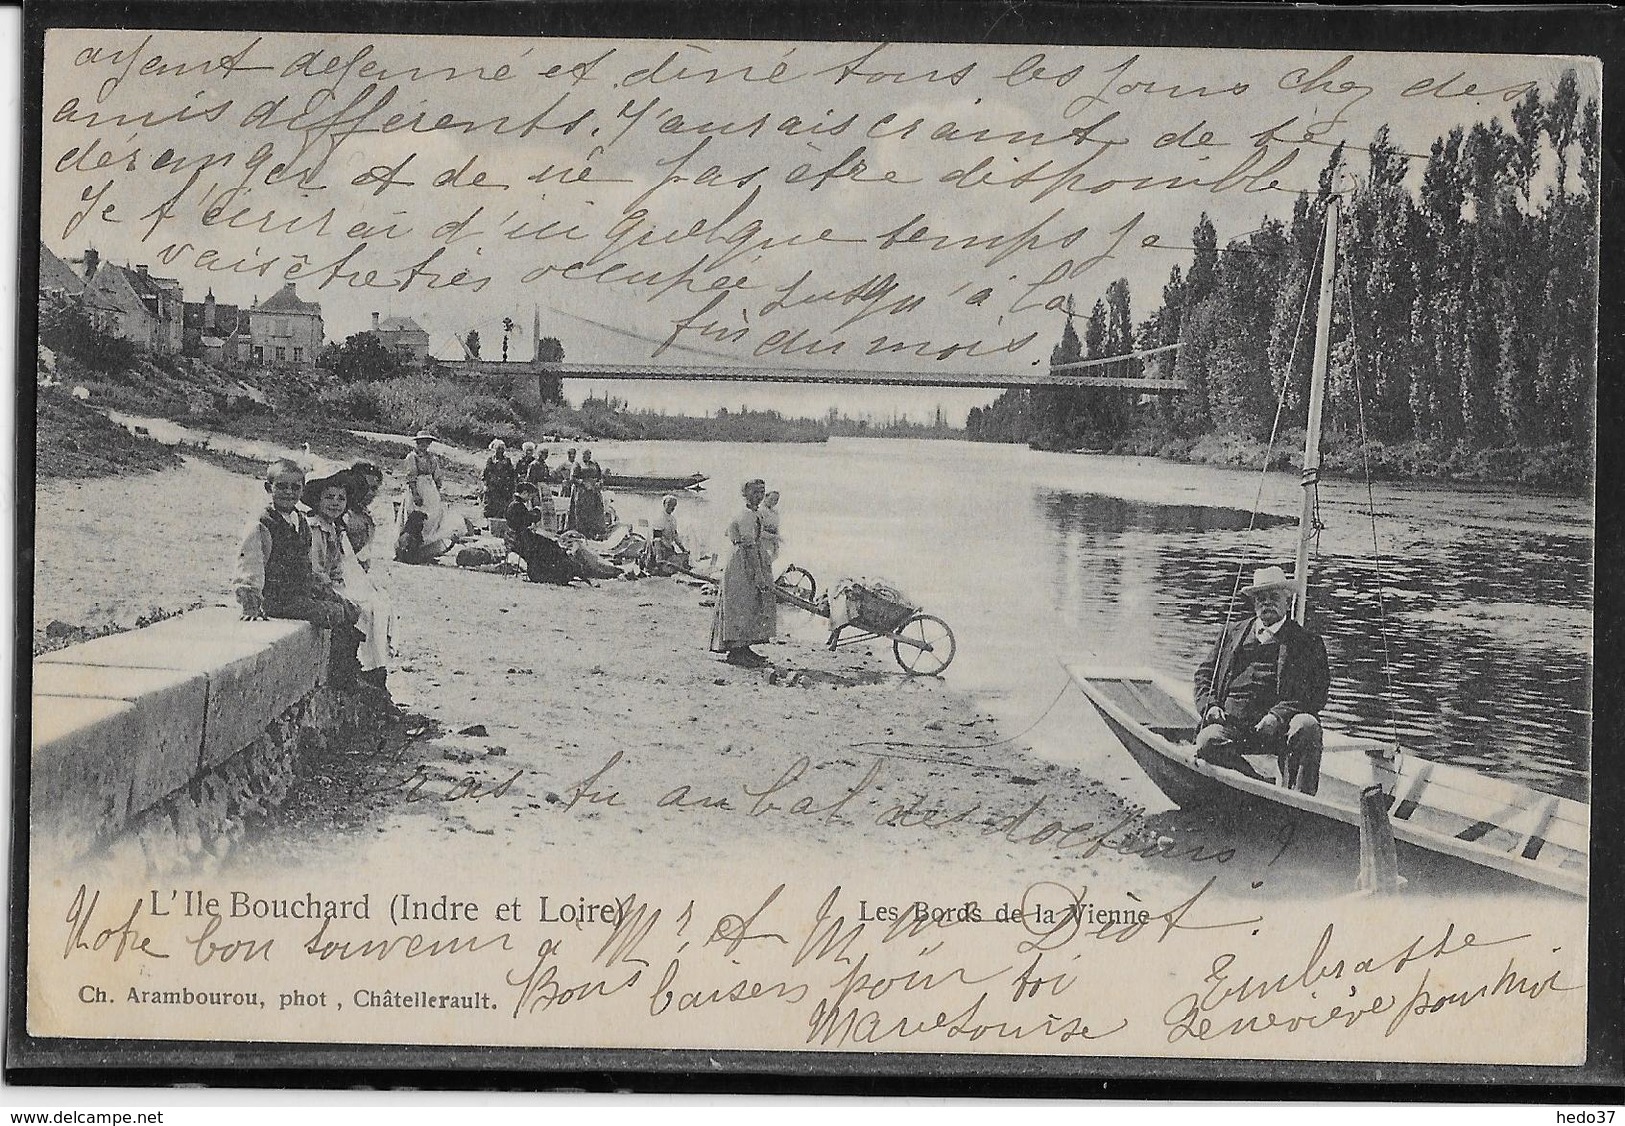 ayant dejeuné et diné tous les jours chez des
amis différents. J'aurais craint de te
déranger et de ne pas être disponible
Je t'écrirai d'ici quelque temps je
vais être très occupée jusqu'à la
fin du mois.
Iras tu au bal des docteurs ?
L'Ile Bouchard (Indre et Loire)
Les Bords de la Vienne
Notre bon souvenir a Mr et Mme Diot.
Ch. Arambourou, phot, Châtellerault.
Bons baisers pour toi
Marie Louise
Embrasse
Geneviève pour moi
www.delcampe.net
hedo37